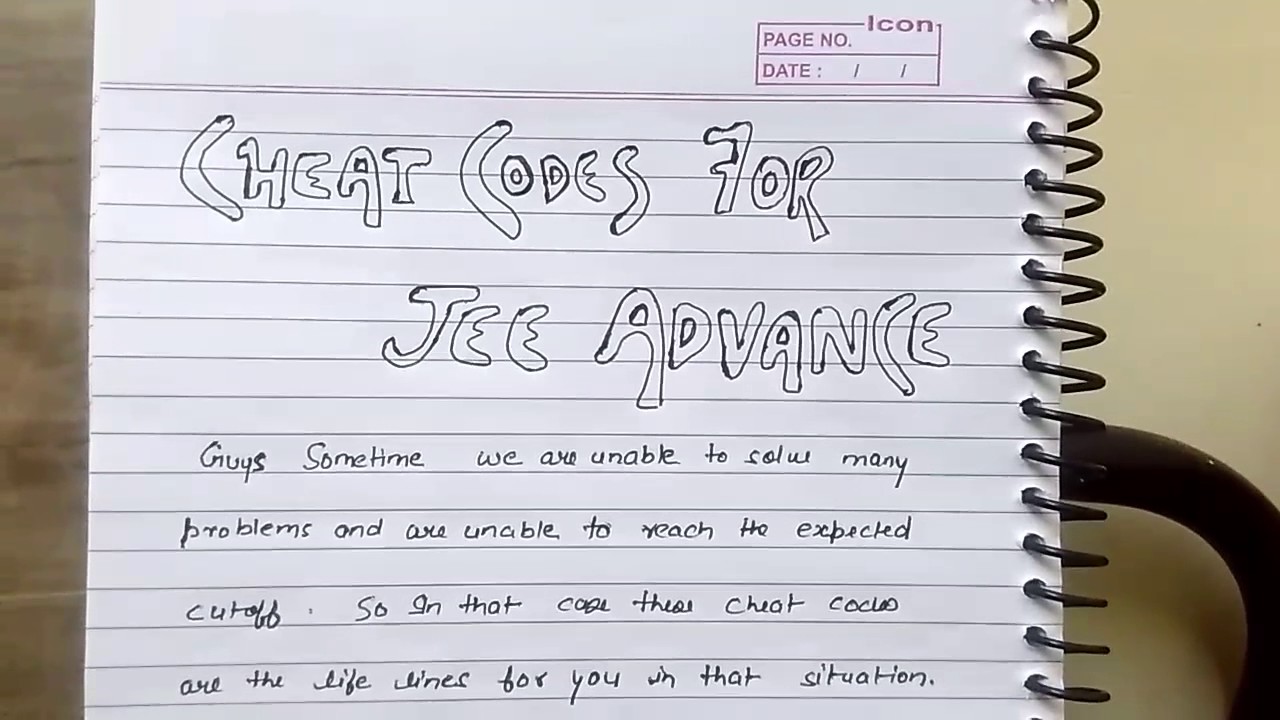 Icon
PAGE NO.
DATE : / /
CHEAT CODES FOR
JEE ADVANCE
Guys Sometime we are unable to solve many
problems and are unable to reach the expected
cutoff. So In that case these cheat codes
are the life lines for you in that situation.